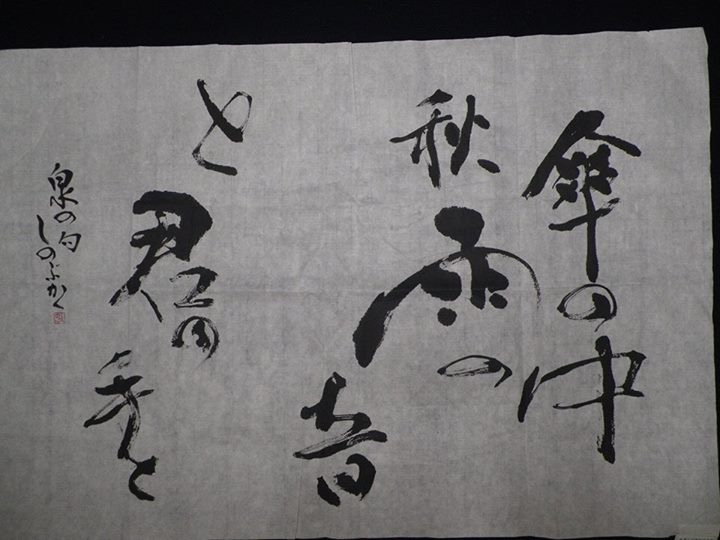 傘の中
秋雨の
音
と君の
と
泉の句
しのぶかく